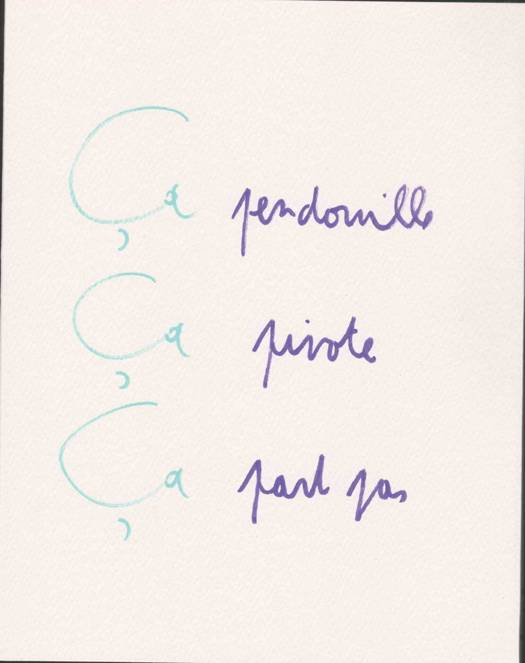 Ça pendouille
Ça pivote
Ça part pas